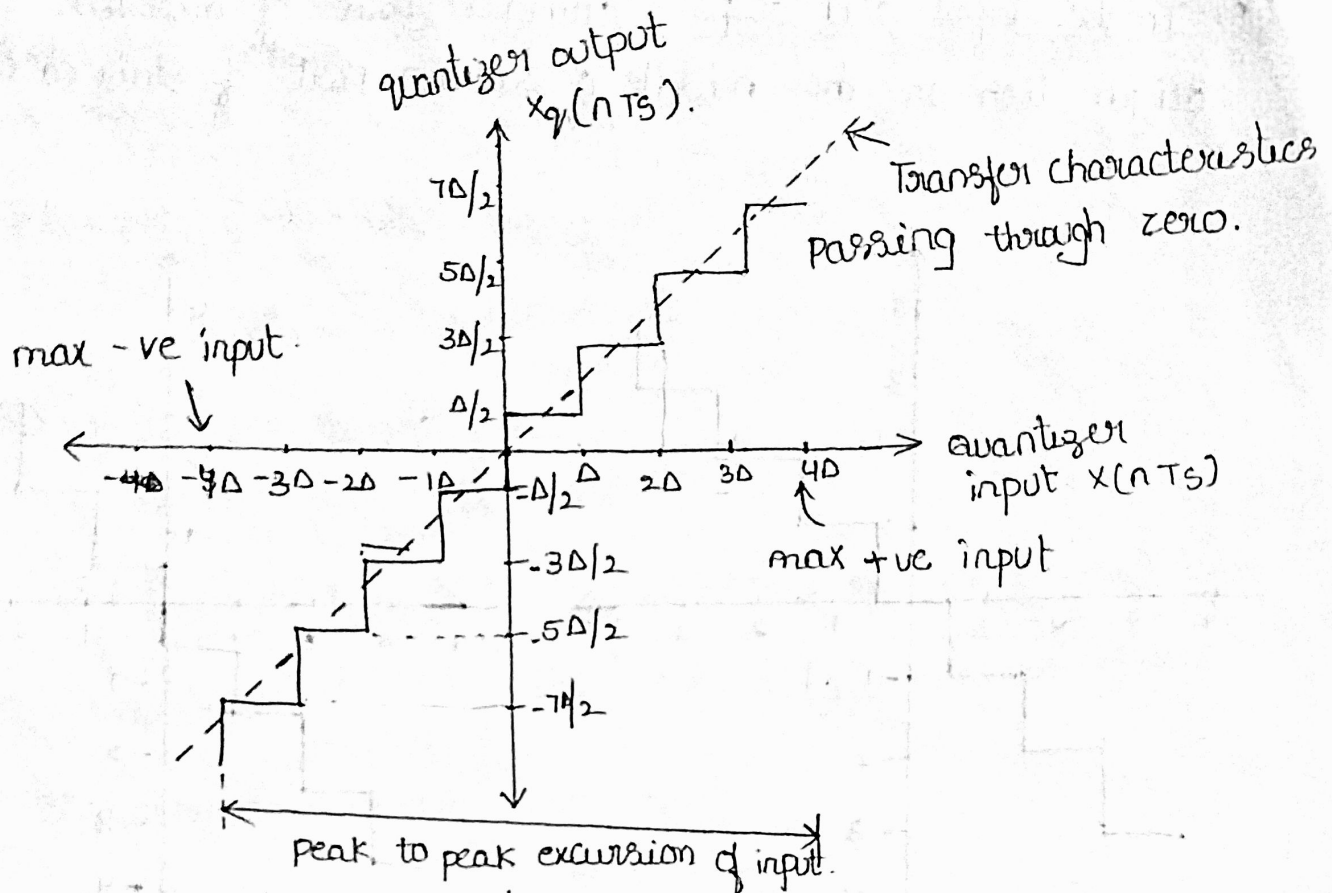 quantizer output
xq(nTs).
Transfer characteristics
passing through zero.
7Δ/2
5Δ/2
3Δ/2
Δ/2
max -ve input.
-4Δ -3Δ -2Δ -1Δ
Δ 2Δ 3Δ 4Δ
quantizer
input x(nTs)
max +ve input
-Δ/2
-3Δ/2
-5Δ/2
-7Δ/2
peak to peak excursion of input.